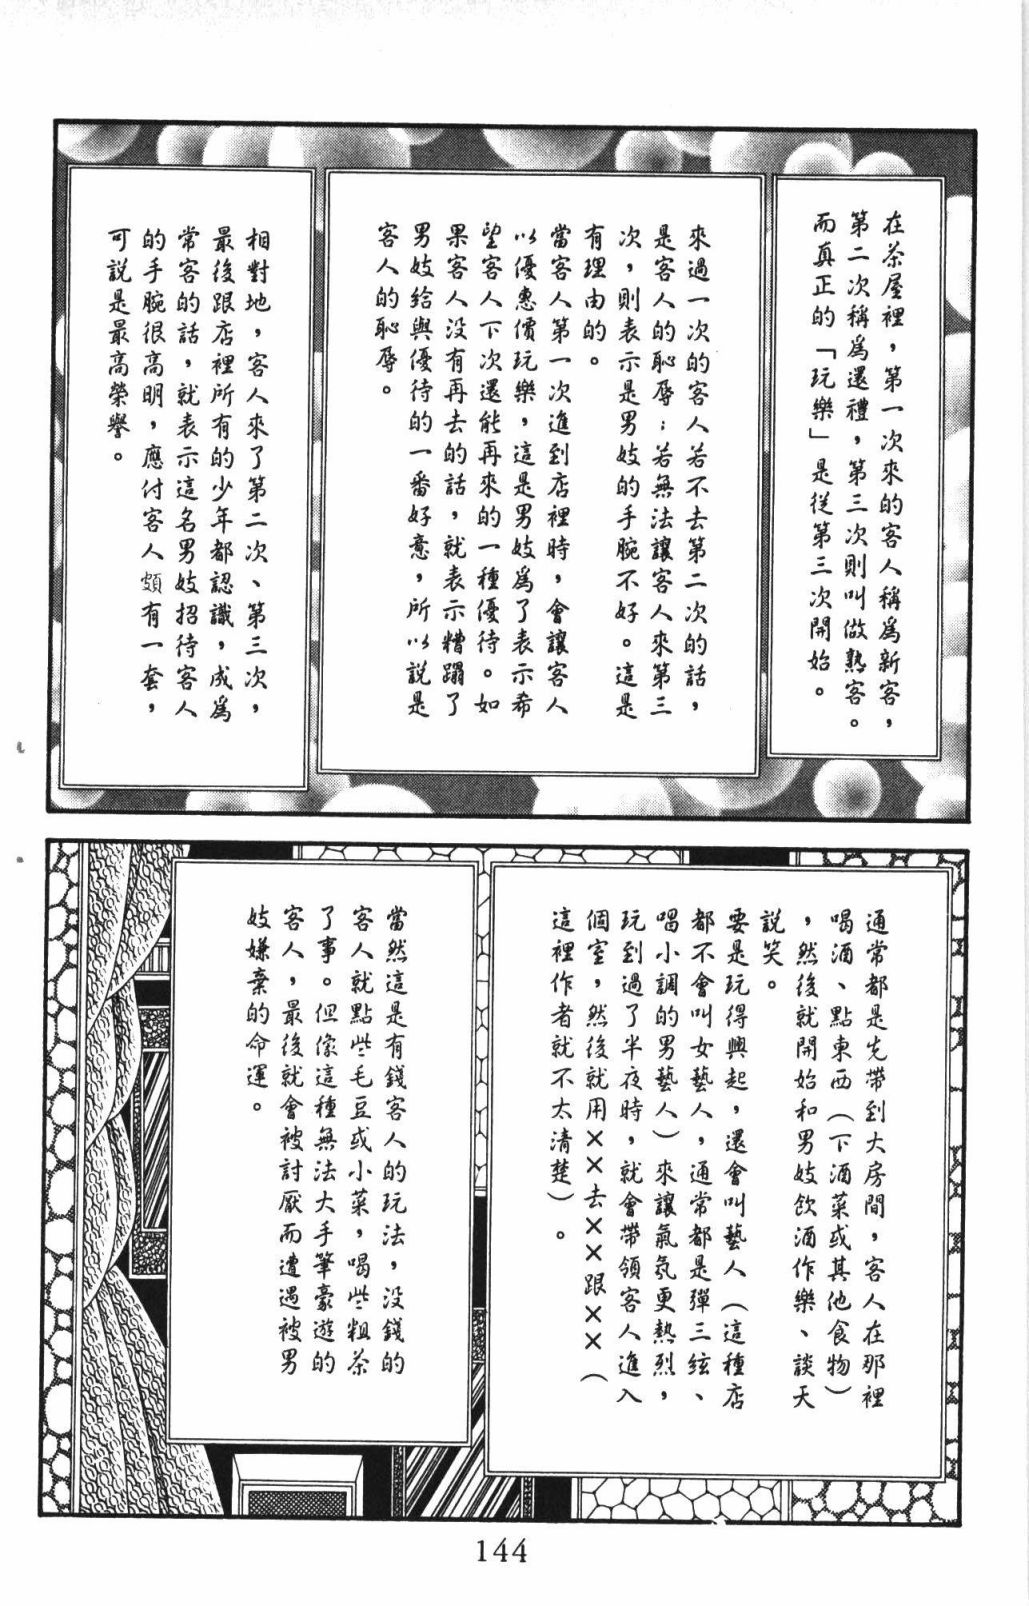 在茶屋裡，第一次來的客人稱爲新客，
第二次稱爲還禮，第三次則叫做熟客。
而真正的「玩樂」是從第三次開始。
來過一次的客人若不去第二次的話，
是客人的恥辱；若無法讓客人來第三
次，則表示是男妓的手腕不好。這是
有理由的。
當客人第一次進到店裡時，會讓客人
以優惠價玩樂，這是男妓爲了表示希
望客人下次還能再來的一種優待。如
果客人沒有再去的話，就表示糟蹋了
男妓給與優待的一番好意，所以說是
客人的恥辱。
相對地，客人來了第二次、第三次，
最後跟店裡所有的少年都認識，成爲
常客的話，就表示這名男妓招待客人
的手腕很高明，應付客人頗有一套，
可說是最高榮譽。
通常都是先帶到大房間，客人在那裡
喝酒、點東西（下酒菜或其他食物）
，然後就開始和男妓飲酒作樂、談天
說笑。
要是玩得興起，還會叫藝人（這種店
都不會叫女藝人，通常都是彈三絃、
喝小調的男藝人）來讓氣氛更熱烈，
玩到過了半夜時，就會帶領客人進入
個室，然後就用××去××跟××（
這裡作者就不太清楚）。
當然這是有錢客人的玩法，沒錢的
客人就點些毛豆或小菜，喝些粗茶
了事。但像這種無法大手筆豪遊的
客人，最後就會被討厭而遭遇被男
妓嫌棄的命運。
144